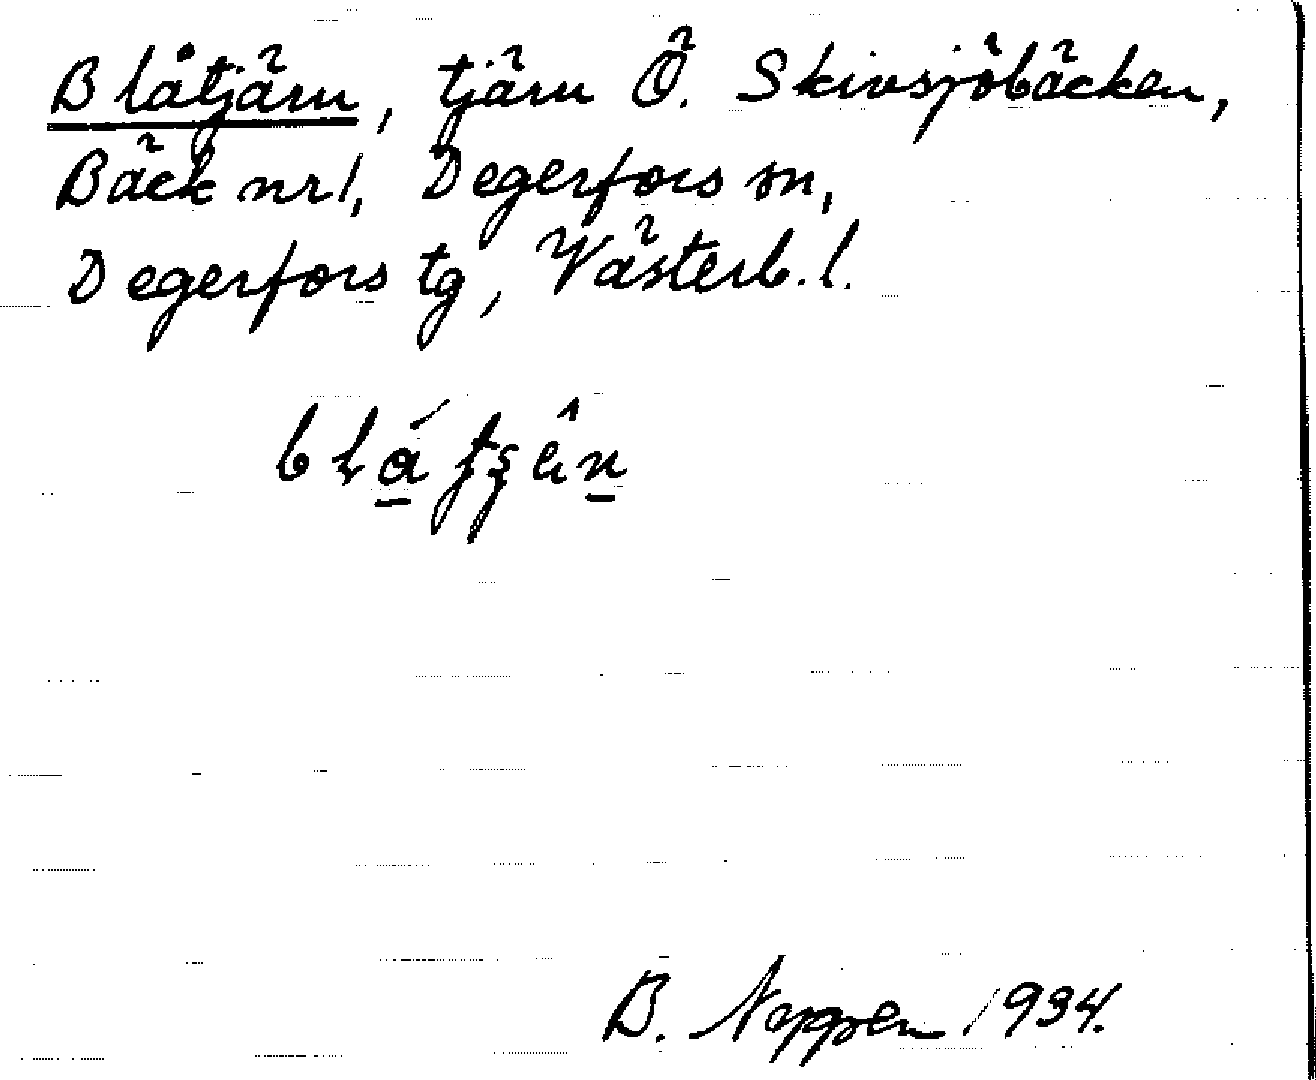 Blåtjärn, tjärn Ö. Skivsjöbäcken,
Bäck nr 1, Degerfors sn,
Degerfors tg, Västerb. l.
B. Noppen 1934.